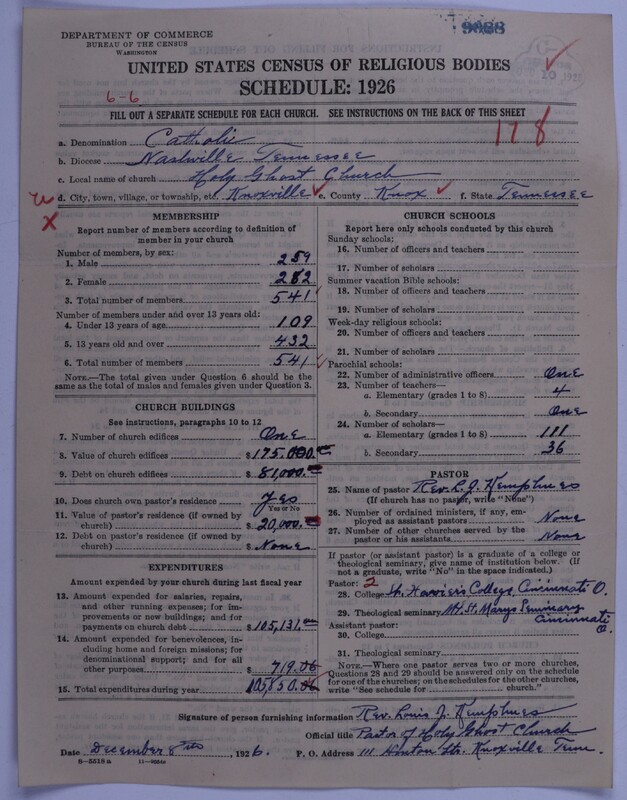 9088
DEPARTMENT OF COMMERCE
BUREAU OF THE CENSUS
WASHINGTON
UNITED STATES CENSUS OF RELIGIOUS BODIES
SCHEDULE: 1926
6-6
FILL OUT A SEPARATE SCHEDULE FOR EACH CHURCH. SEE INSTRUCTIONS ON THE BACK OF THIS SHEET
178
a. Denomination Catholic
b. Diocese Nashville Tennessee
c. Local name of church Holy Ghost Church
d. City, town, village, or township, etc. Knoxville e. County Knox f. State Tennessee
X
MEMBERSHIP
Report number of members according to definition of
member in your church
Number of members, by sex:
1. Male 259
2. Female 282
3. Total number of members 541
Number of members under and over 13 years old:
4. Under 13 years of age 109
5. 13 years old and over 432
6. Total number of members 541
NOTE.—The total given under Question 6 should be the
same as the total of males and females given under Question 3.
CHURCH BUILDINGS
See instructions, paragraphs 10 to 12
7. Number of church edifices One
8. Value of church edifices $175.000.
9. Debt on church edifices $81,000.
10. Does church own pastor's residence Yes
Yes or No
11. Value of pastor's residence (if owned by
church) $20,000.
12. Debt on pastor's residence (if owned by
church) $None
EXPENDITURES
Amount expended by your church during last fiscal year
13. Amount expended for salaries, repairs,
and other running expenses; for im-
provements or new buildings; and for
payments on church debt $105,131.
14. Amount expended for benevolences, in-
cluding home and foreign missions; for
denominational support; and for all
other purposes $719.06
15. Total expenditures during year 105,850.06
CHURCH SCHOOLS
Report here only schools conducted by this church
Sunday schools:
16. Number of officers and teachers
17. Number of scholars
Summer vacation Bible schools:
18. Number of officers and teachers
19. Number of scholars
Week-day religious schools:
20. Number of officers and teachers
21. Number of scholars
Parochial schools:
22. Number of administrative officers One
23. Number of teachers—
a. Elementary (grades 1 to 8) 4
b. Secondary One
24. Number of scholars—
a. Elementary (grades 1 to 8) 111
b. Secondary 36
PASTOR
25. Name of pastor Rev. L. J. Kemphues
(If church has no pastor, write "None")
26. Number of ordained ministers, if any, em-
ployed as assistant pastors None
27. Number of other churches served by the
pastor or his assistants None
If pastor (or assistant pastor) is a graduate of a college or
theological seminary, give name of institution below. (If
not a graduate, write "No" in the space indicated.)
Pastor: 2
28. College St. Xaviers College, Cincinnati O.
29. Theological seminary Mt. St. Marys Seminary
Cincinnati
O.
Assistant pastor:
30. College
31. Theological seminary
NOTE.—Where one pastor serves two or more churches,
Questions 28 and 29 should be answered only on the schedule
for one of the churches; on the schedules for the other churches,
write "See schedule for church."
Signature of person furnishing information Rev. Louis J. Kemphues
Official title Pastor of Holy Ghost Church
Date December 8th, 1926. P. O. Address 111 Hinton Str. Knoxville Tenn.